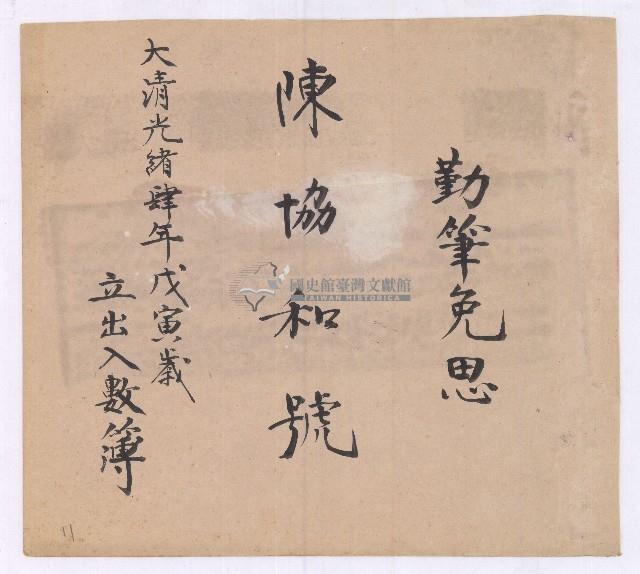 勤筆免思
陳協和號
大清光緒肆年戊寅歲
立出入數簿
國史館臺灣文獻館
TAIWAN HISTORICA